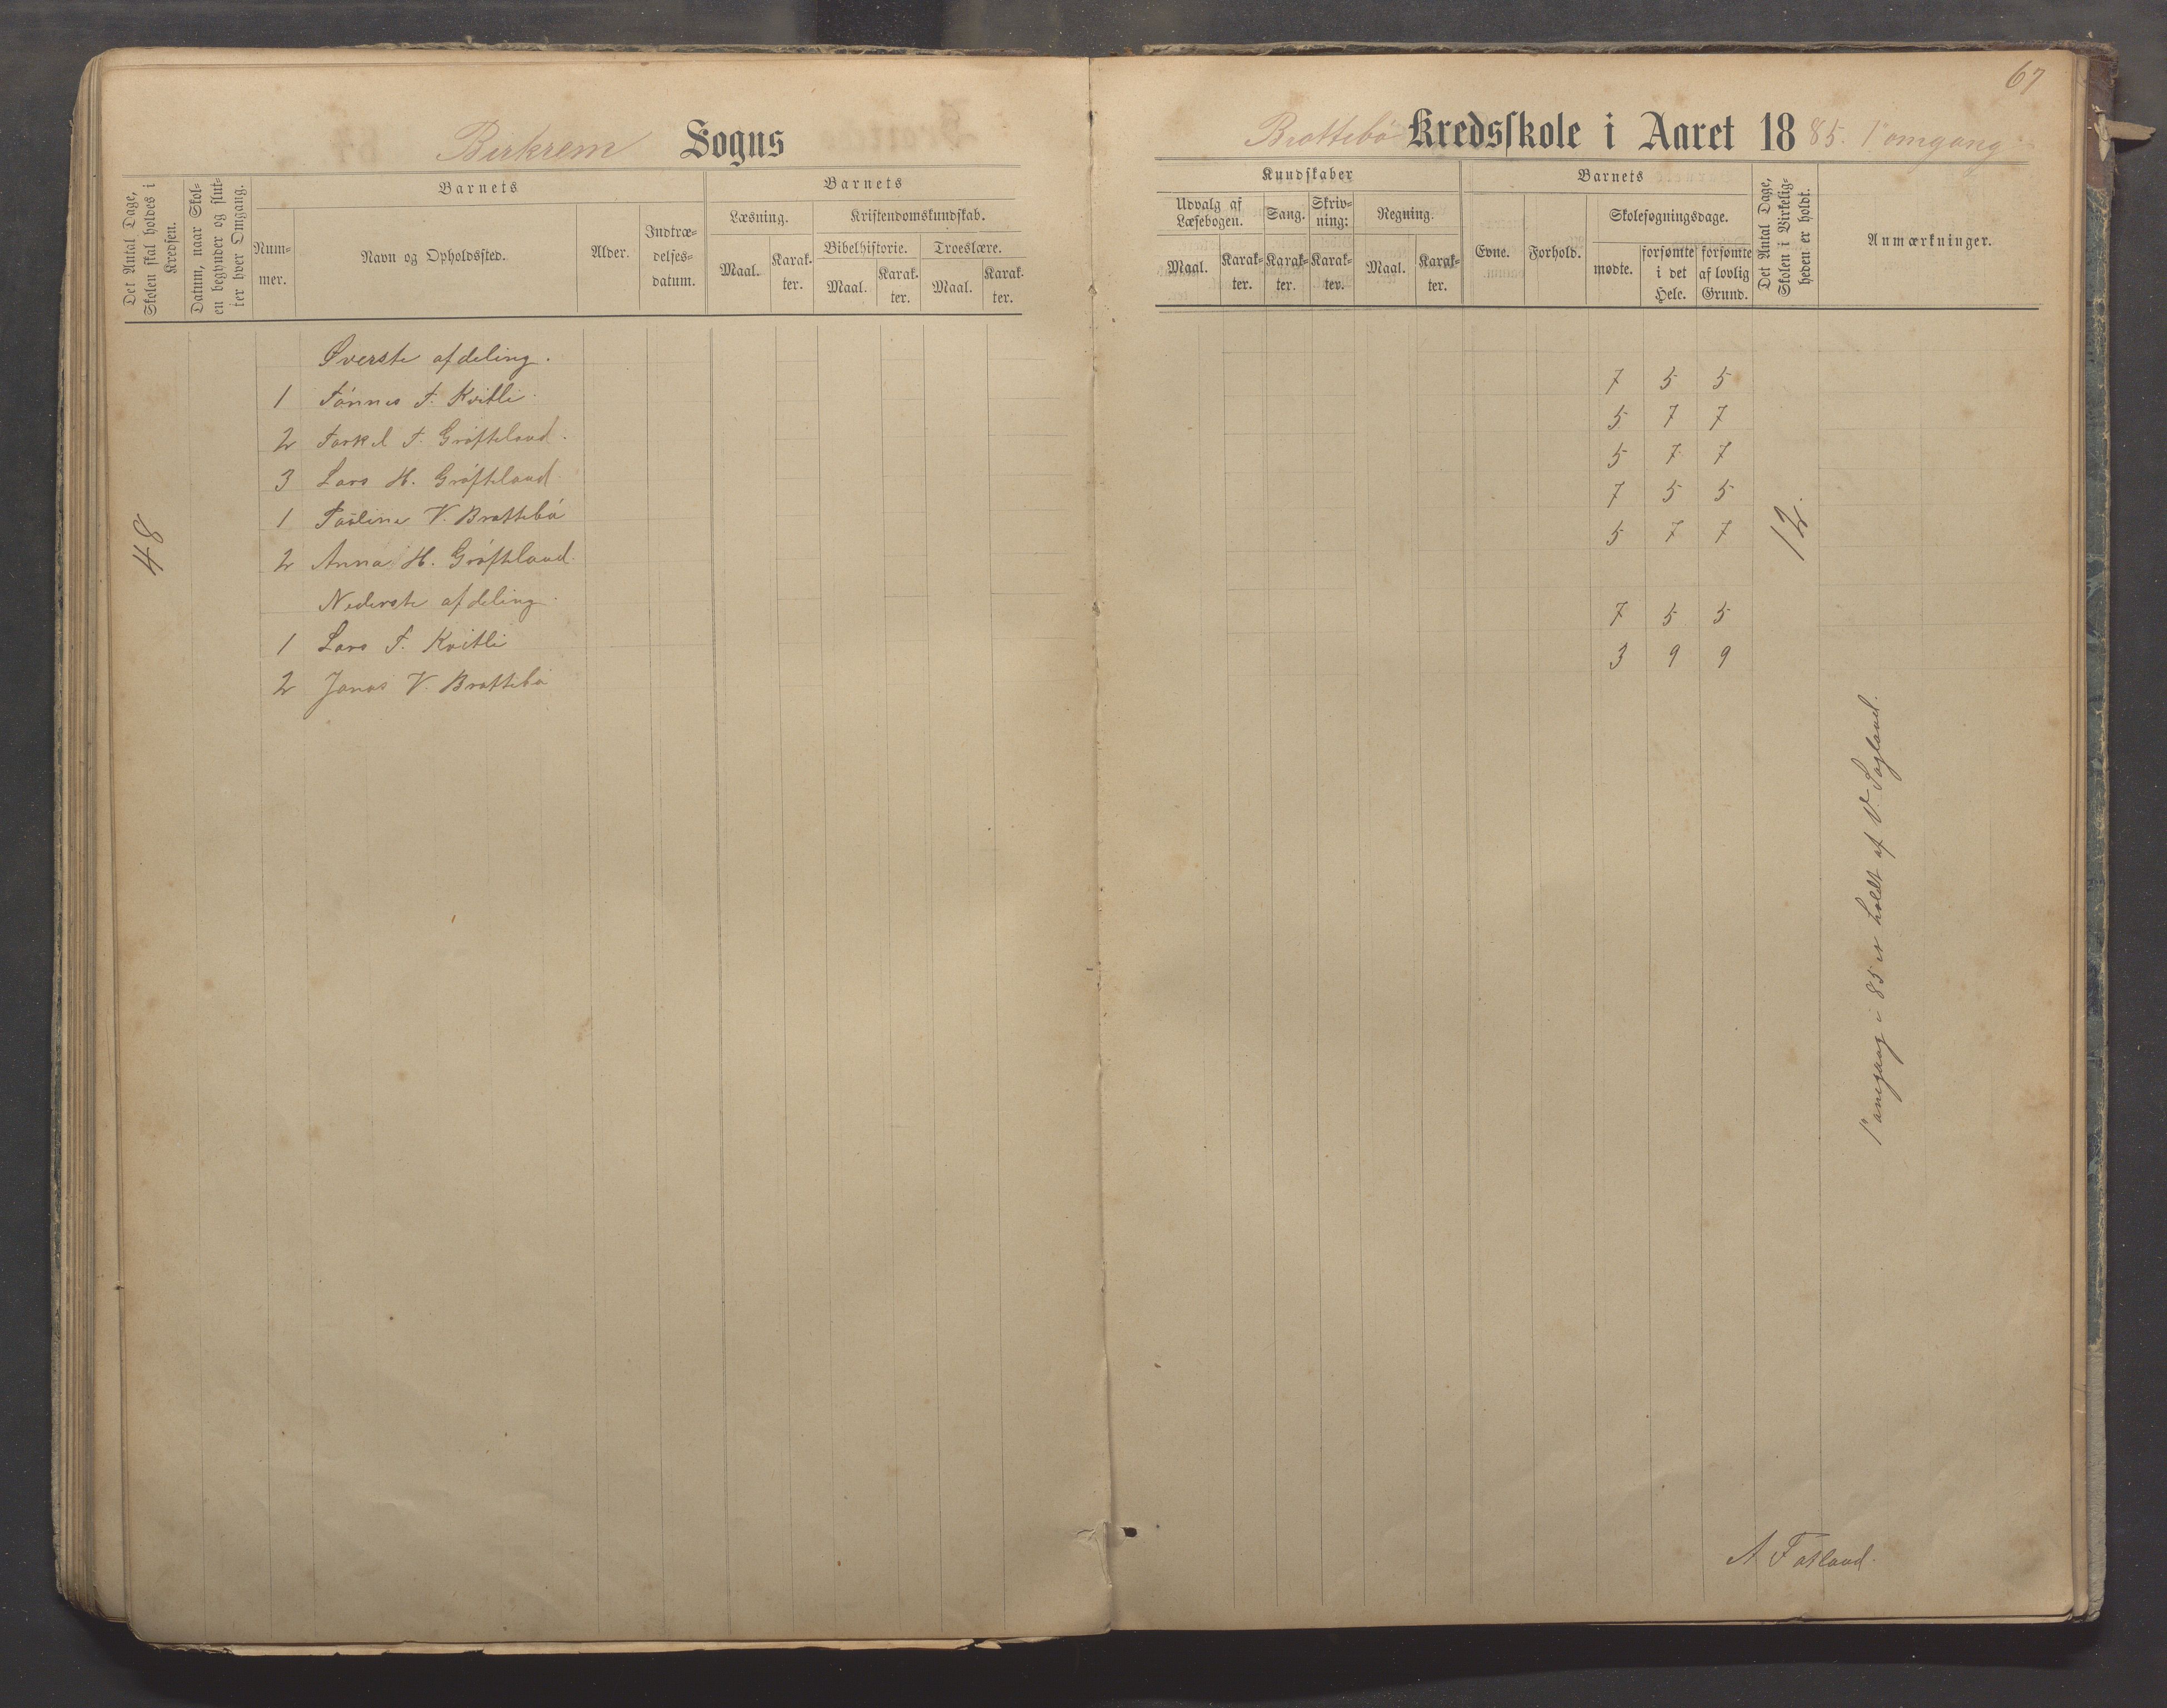 67
Birkrem Sogns
Brottebø Kredsskole i Aaret 1885. 1ste omgang
Det Antal Dage, Skolen skal holdes i Kredsen.
Datum, naar Skolen begynder og slutter hver Omgang.
Barnets
Nummer.
Navn og Opholdssted.
Alder.
Indtrædelsesdatum.
Barnets
Læsning.
Maal.
Karakter.
Kristendomskundskab.
Bibelhistorie.
Maal.
Karakter.
Troeslære.
Maal.
Karakter.
Kundskaber
Udvalg af Læsebogen.
Maal.
Karakter.
Sang.
Karakter.
Skrivning:
Karakter.
Regning.
Maal.
Karakter.
Barnets
Evne.
Forhold.
Skolesøgningsdage.
mødte.
forsømte i det Hele.
forsømte af lovlig Grund.
Det Antal Dage, Skolen i Virkeligheden er holdt.
Anmærkninger.
48
Øverste afdeling.
1 Tønnes T. Kvitli 7 5 5
2 Torkel T. Grøfteland 5 7 7
3 Lars H. Grøfteland 5 7 7
1 Taaline V. Brottebø 7 5 5
2 Anna H. Grøfteland 5 7 7
Nederste afdeling
1 Lars T. Kvitli 7 5 5
2 Jonas V. Brottebø 3 9 9
12.
1ste omgang i 85 er holdt af V. Fogland.
A Fotland